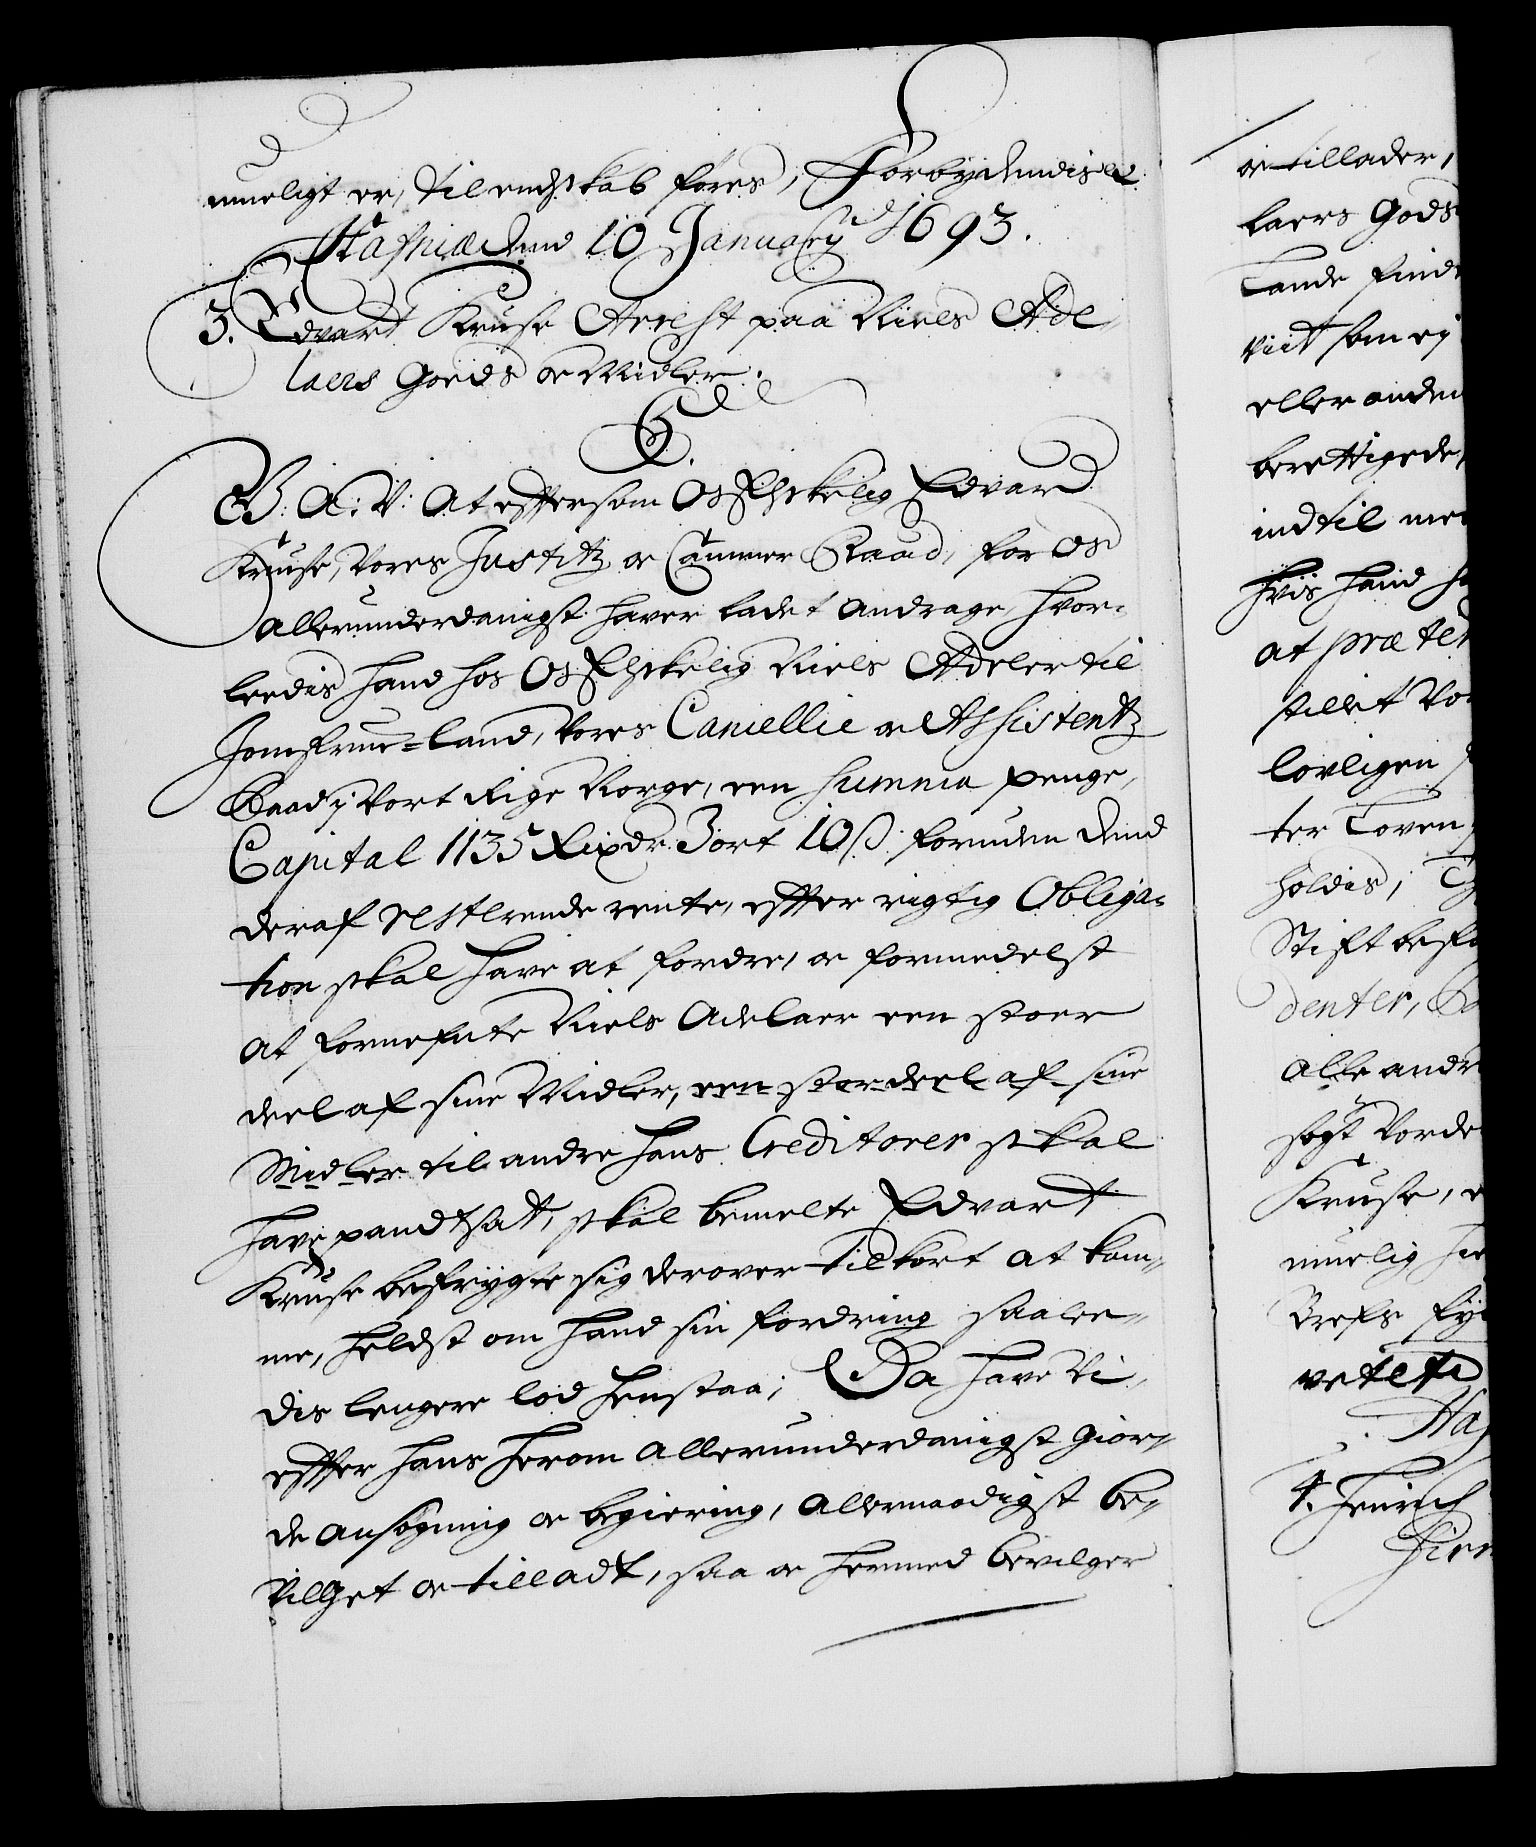 mueligt er, til endskab føres, Forbydendis &c.
Hafniæ dend 10 January 1693.
3. Edvart Kruse Arrest paa Niels Ade-
laers Goeds oc Midler.
C5.
G. A: V: At eftersom Os Elskelig Edvard
Kruse, Vores Justitz oc Cammer Raad, for Os
allerunderdanigst haver ladet andrage, hvor-
leedis hand hos Os Elskelig Niels Adeler til
Jomfrue-land, Vores Cancellie oc Assistentz
Raad j Vort Rige Norge, een summa penge,
Capital 1135 Rixdr. 3 ort 10 ß: foruden dend
deraf resterende rente, efter rigtig Obliga-
tion skal have at fordre, oc formedelst
at fornefnte Niels Adelaer een stoer
deel af sine Midler, een stor deel af sine
Midler til andre hans Creditorer skal
have pandtsat, skal bemelte Edvart
Kruse befrygte sig derover til kort at kom-
me, heldst om hand sin fordring saalee-
dis lengere lod henstaa; Da have Vi
efter hans herom allerunderdanigst gior-
de ansøgning oc begiering, allernaadigst be-
vilget oc tilladt, saa oc hermed bevilger
oc tillader,
laers Gods
Lande find
viit som ej
eller anden
berettigede,
indtil me
hvis hand h
at præte
stillet Vo
lovligen
ter Loven
holdis;
Stift befa
denter,
alle andr
søgt vorde
Kruse,
muelig he
Brefs
veteti
Haf
4. Henrich